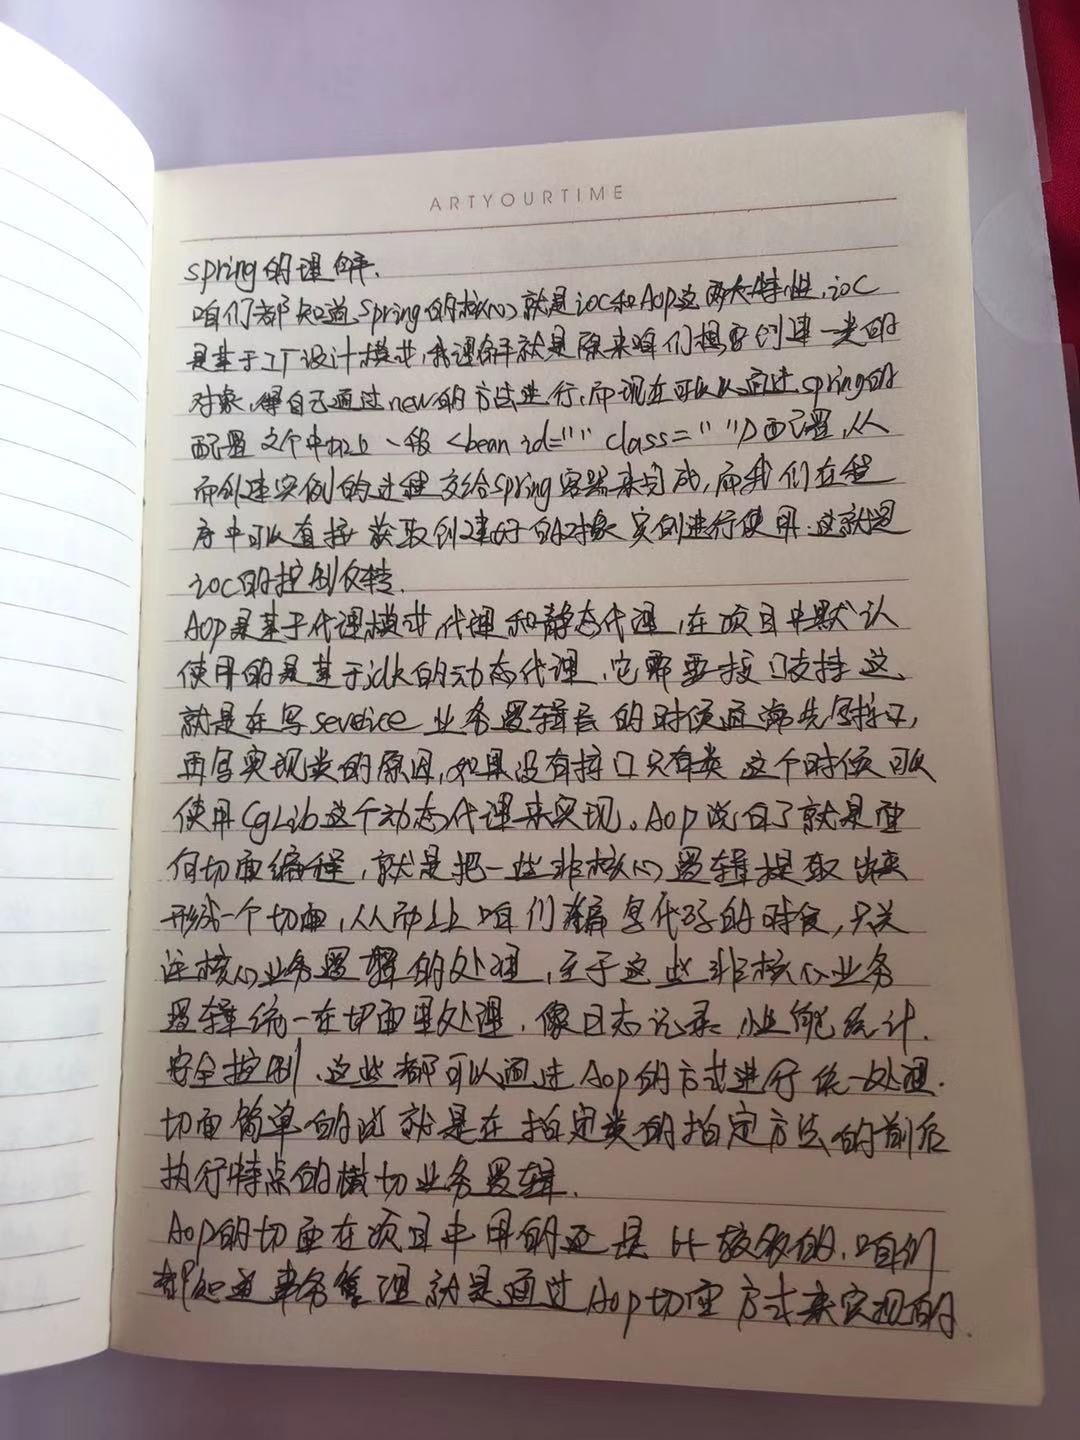 ARTYOURTIME
spring的理解.
咱们都知道,Spring的核心就是ioc和Aop这两大特性,ioC
是基于工厂设计模式,我理解就是原来咱们想要创建一类的
对象,得自己通过new的方法进行,而现在可以以通过spring的
配置文个中加上、一般<bean id="" class=" "/>配置,从
而创建实例的过程交给spring容器来完成,而我们在程
序中可以直接获取创建好的对象实例进行使用.这就是
ioc的控制反转.
Aop是基于代理模式,代理和静态代理,在项目中默认
使用的是基于jdk的动态代理,它需要接口支持.这、
就是在写sevdice业务逻辑层的时候通常先写接口,
再写实现类的原因,如果没有接口只有类 这个时候可以
使用CgLib这个动态代理来实现。Aop说白了就是面
向切面编程,就是把一些非核心逻辑提取出来
形成一个切面,从而让咱们编写代码的时候,只关
注核心业务逻辑的处理,至于这些非核心业务
逻辑统一在切面里处理,像日志记录、性能统计.
安全控制、这些都可以通过Aop的方式进行统一处理.
切面简单的说就是在指定类的指定方法的前后
执行特点的横切业务逻辑.
Aop的切面在项目中用的还是比较多的,咱们
都知道事务管理就是通过Aop切面方式来实现的.